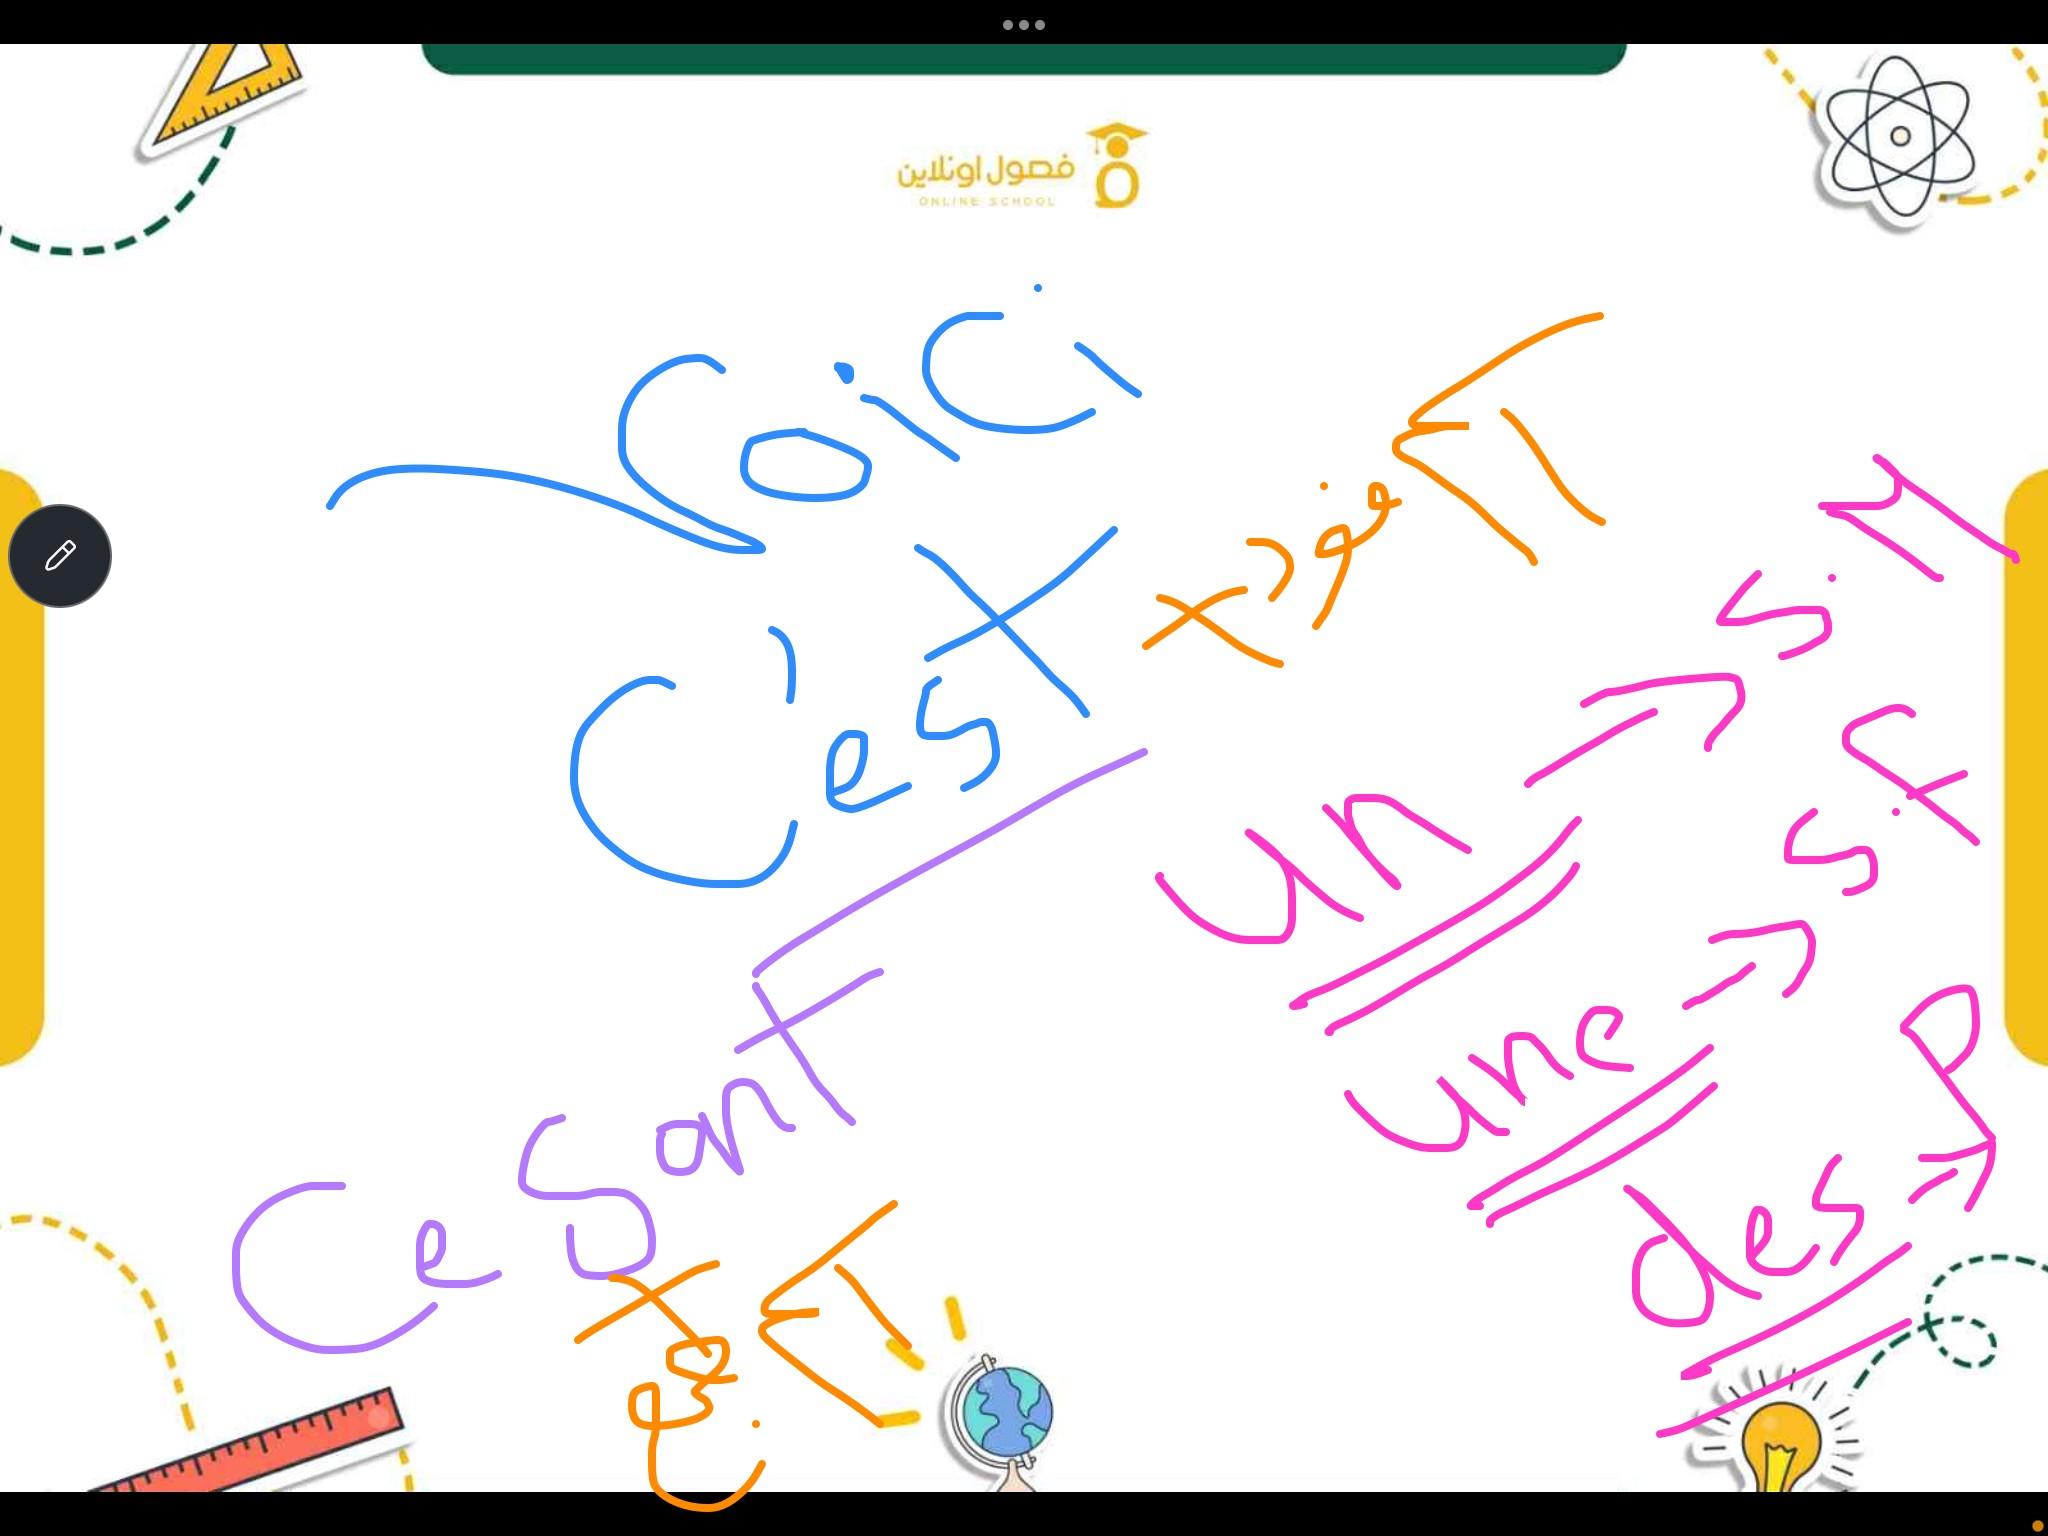 فصول اونلاين
ONLINE SCHOOL
Voici
C'est
un → s.M
une → s.f
des → P
Ce sont